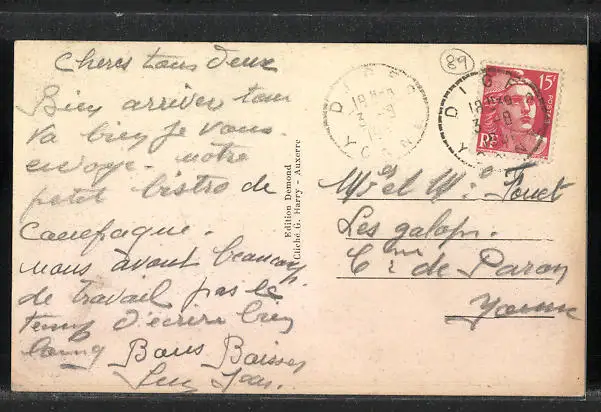 Cheres tous deux
Bien arriver tou
va bien je vous
envoye notre
petit bistro de
campagne.
nous avont beaucoup
de travail pas le
temps d'ecrire bien
long Bons Baisers
Edition Demond
Cliché G. Harry - Auxerre
DIGES
18 H
3 - 9
YONNE
89
DIGES
18 H
3 - 9
YONNE
15F
POSTES
RF
Mr et Me
Les galops.
Cne de Paron
Yonne